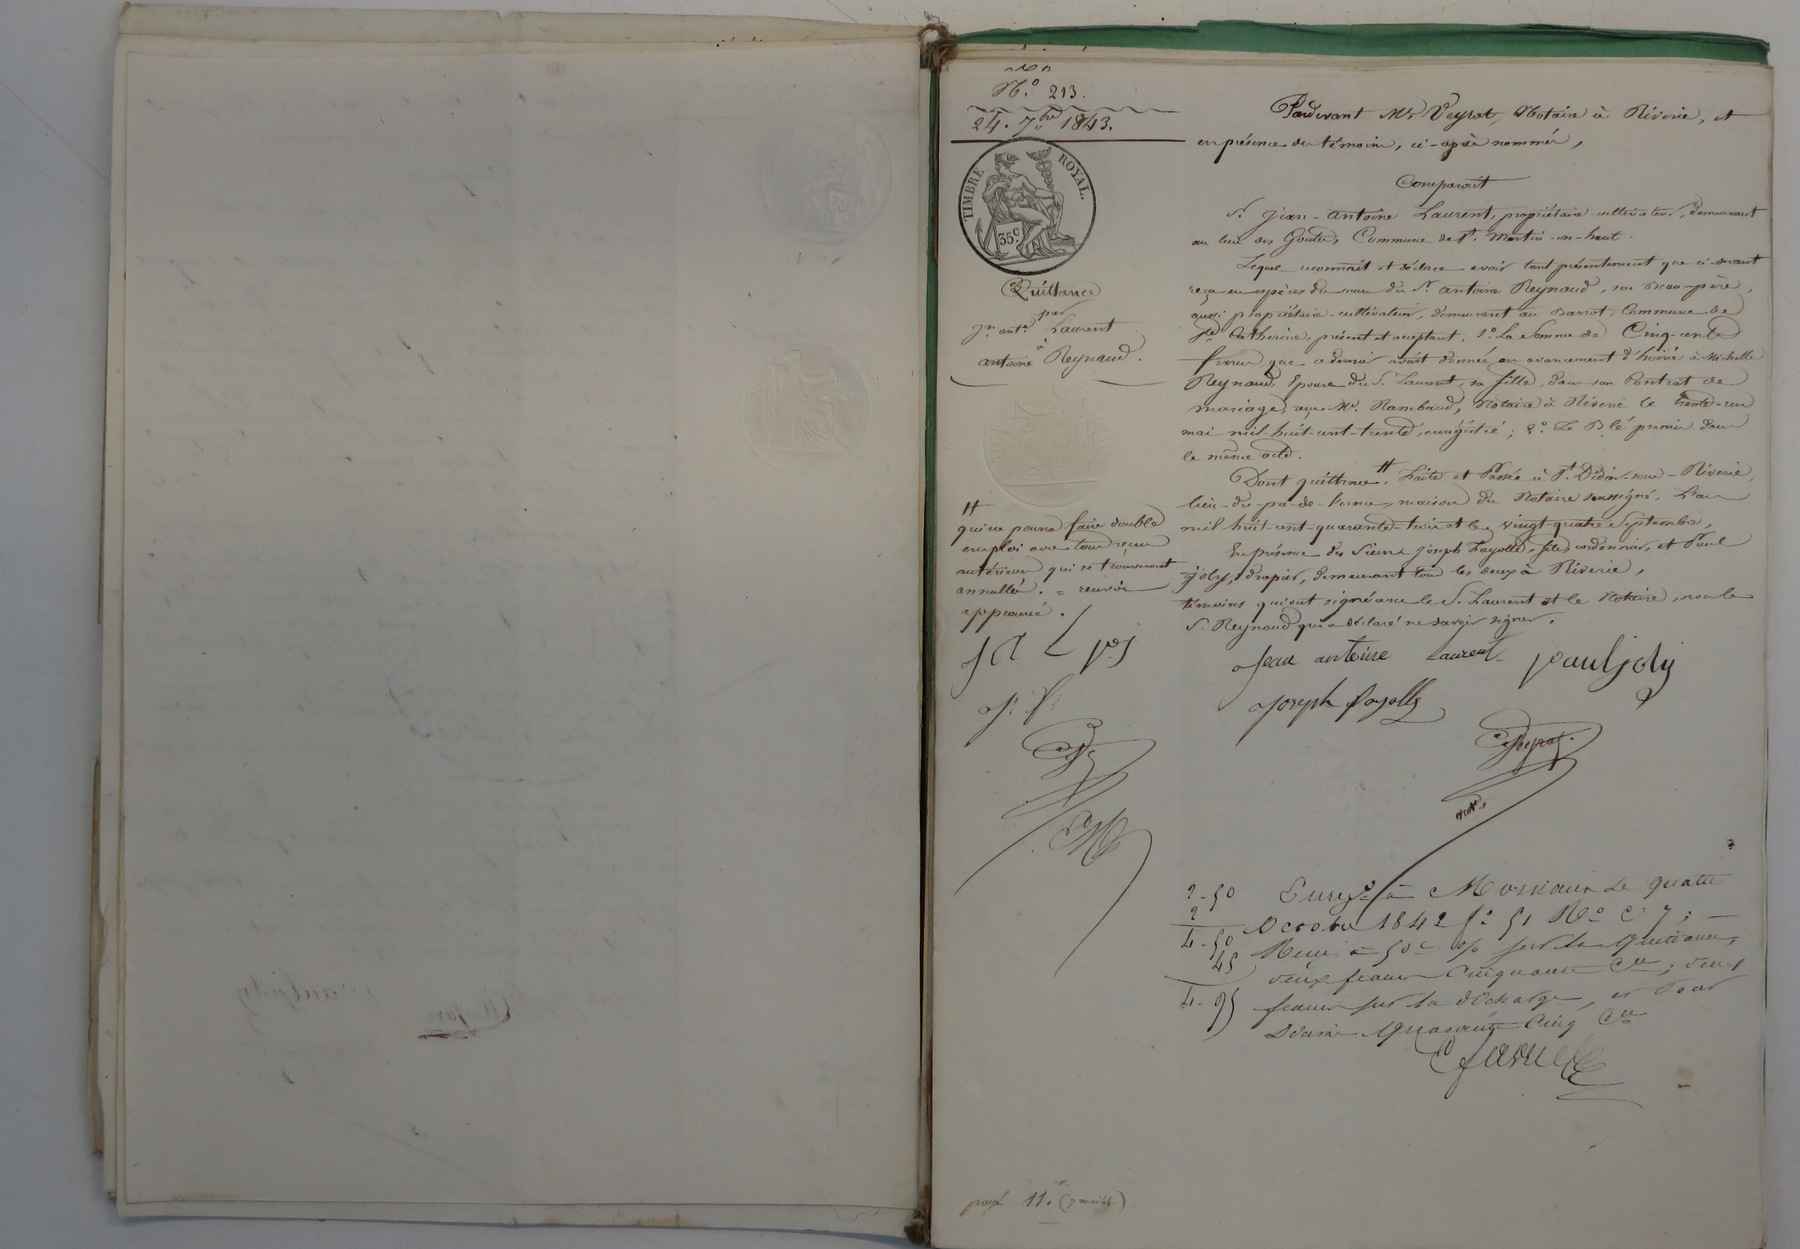 N.º 213.
24. 7.bre 1843.
TIMBRE ROYAL.
35 c.
Quittance
par
Jn. ante. Laurent
à
antoine Reynaud.
Pardevant Me. Veyrat, Notaire à Riverie, et
en présence des témoins, ci-après nommés,
Comparait
Sr. Jean-antoine Laurent, propriétaire-cultivateur, demeurant
au lieu des Goutes, Commune de St. Martin-en-haut.
Lequel reconnait et déclare avoir tant présentement que ci-devant
reçu en espèces du cours du Sr. antoine Reynaud, son Beau-père,
aussi propriétaire-cultivateur, demeurant au Barrot, Commune de
Ste. Catherine, présent et acceptant. 1.º La Somme de Cinq-cents
francs que ce dernier avait donnée en avancement d'hoirie à Michelle
Reynaud, Epouse du S. Laurent, sa fille, dans son Contrat de
mariage, reçu Me. Rambaud, Notaire à Riverie le trente-un
mai mil-huit-cent-trente, enrégistré; 2.º Le Blé promis dans
le même acte.
Dont quittance. # Faite et Passée à St. Didier-sous-Riverie,
lieu-du-, maison du Notaire soussigné. L'an
mil-huit-cent-quarante-trois et le vingt-quatre Septembre,
En présence des Sieurs Joseph Fayolle, fils, cordonnier, et Paul
Joly, drapier, demeurant tous les deux à Riverie,
témoins qui ont signé avec le S. Laurent et le Notaire, non le
S. Reynaud qui a déclaré ne savoir signer.
#
qui ne pourra faire double
emploi avec tous reçus
antérieurs qui se trouveront
annullés. = renvoi
approuvé.
J A L p. j
J. f.
Jean antoine Laurent
paul joly
Joseph fayolle
Veyrat.
not.e
2-50
2
4-50
45
4-95
Enreg.é à Mornant le quatre
Octobre 1842 f.º 51 R.º C. 7;
Recu à 50 c. % sur la quittance,
deux francs cinquante c.es; deux
francs sur la décharge, et pour
Décime quarante cinq c.es
payé 11. (7 mai 44.)